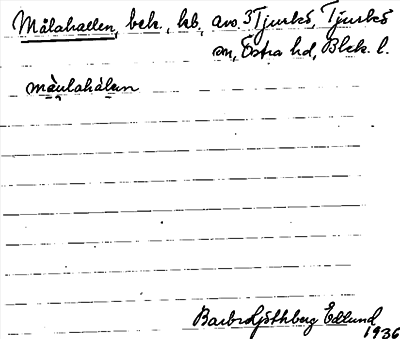 Målahallen, bek., kb, avs. 3 Tjurkö, Tjurkö
sn, Östra hd, Blek. l.
måulahálen
Barbro Ljüthberg Edlund
1936